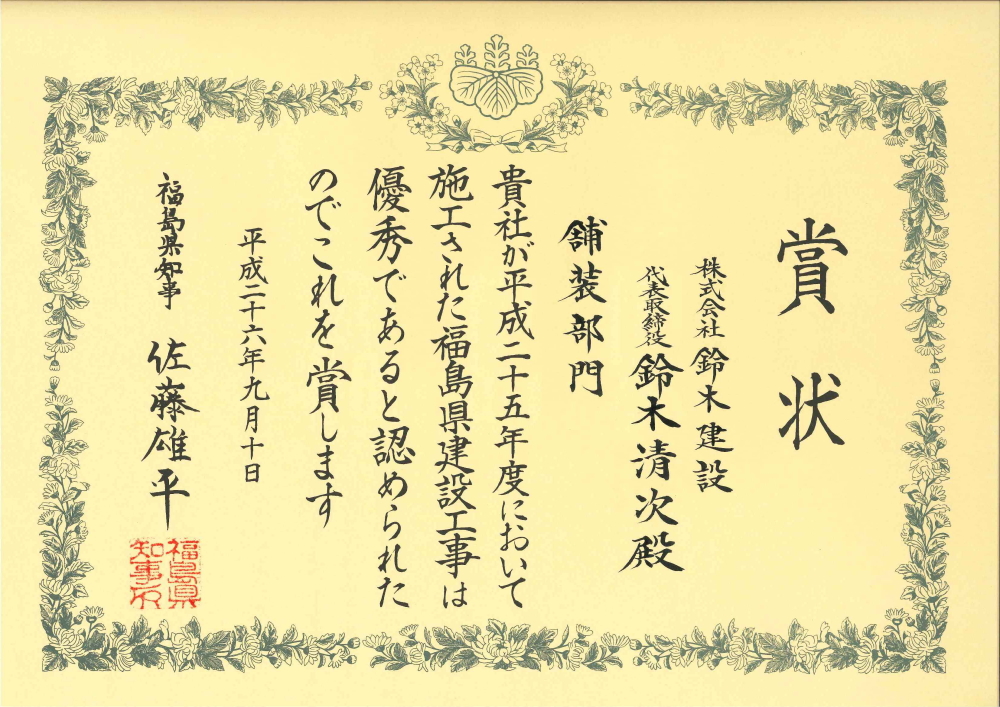 賞状
株式会社 鈴木建設
代表取締役 鈴木清次殿
舗装部門
貴社が平成二十五年度において
施工された福島県建設工事は
優秀であると認められた
のでこれを賞します
平成二十六年九月十日
福島県知事 佐藤雄平
福島県
知事印